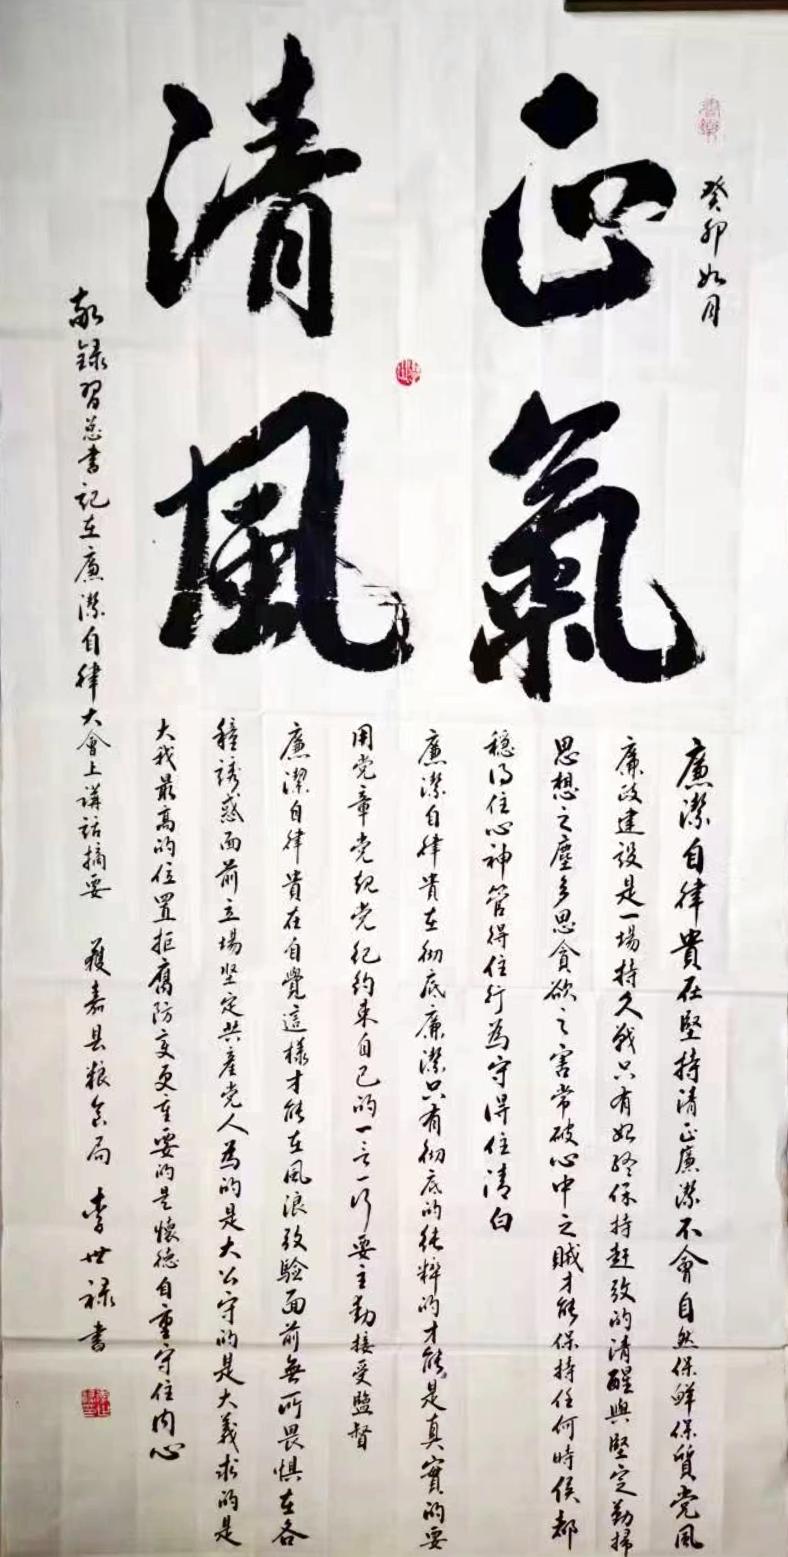 癸卯如月
正氣
清風
廉潔自律貴在堅持清正廉潔不會自然保鮮保質党風
廉政建设是一場持久戰只有始终保持赶攷的清醒與堅定勤掃
思想之塵多思貪欲之害常破心中之贼才能保持任何時候都
穩得住心神管得住行為守得住清白
廉潔自律貴在彻底廉潔只有彻底的純粹的才能是真實的要
用党章党规党纪约束自己的一言一行要主動接受監督
廉潔自律貴在自覺這樣才能在風浪攷驗面前無所畏惧在各
種誘惑面前立場坚定共產党人為的是大公守的是大義求的是
大我最高的位置拒腐防变更重要的是懷德自重守住内心
敬録習总書記在廉潔自律大會上講話摘要 獲嘉县粮食局 李世禄書